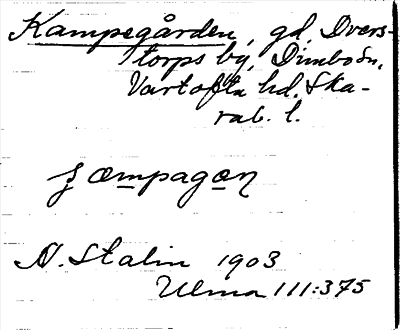 Kampegården, gd, Dvers-
torps by, Dimbo sn,
Vartofta hd. Ska-
rab. l.
kæmpagæn
N. Stalin 1903
Ulma 111:375